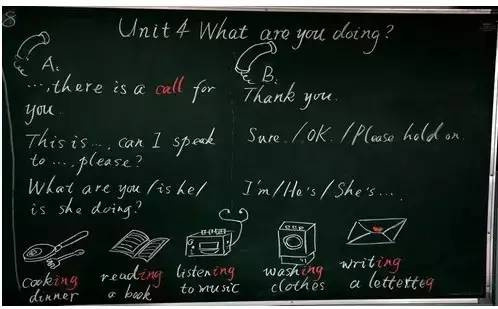 8
Unit 4 What are you doing?
A:
..., there is a call for
you.
This is ..., can I speak
to ..., please?
What are you / is he /
is she doing?
B:
Thank you.
Sure. / OK. / Please hold on.
I'm / He's / She's ....
cooking
dinner
reading
a book
listening
to music
washing
clothes
writing
a letter